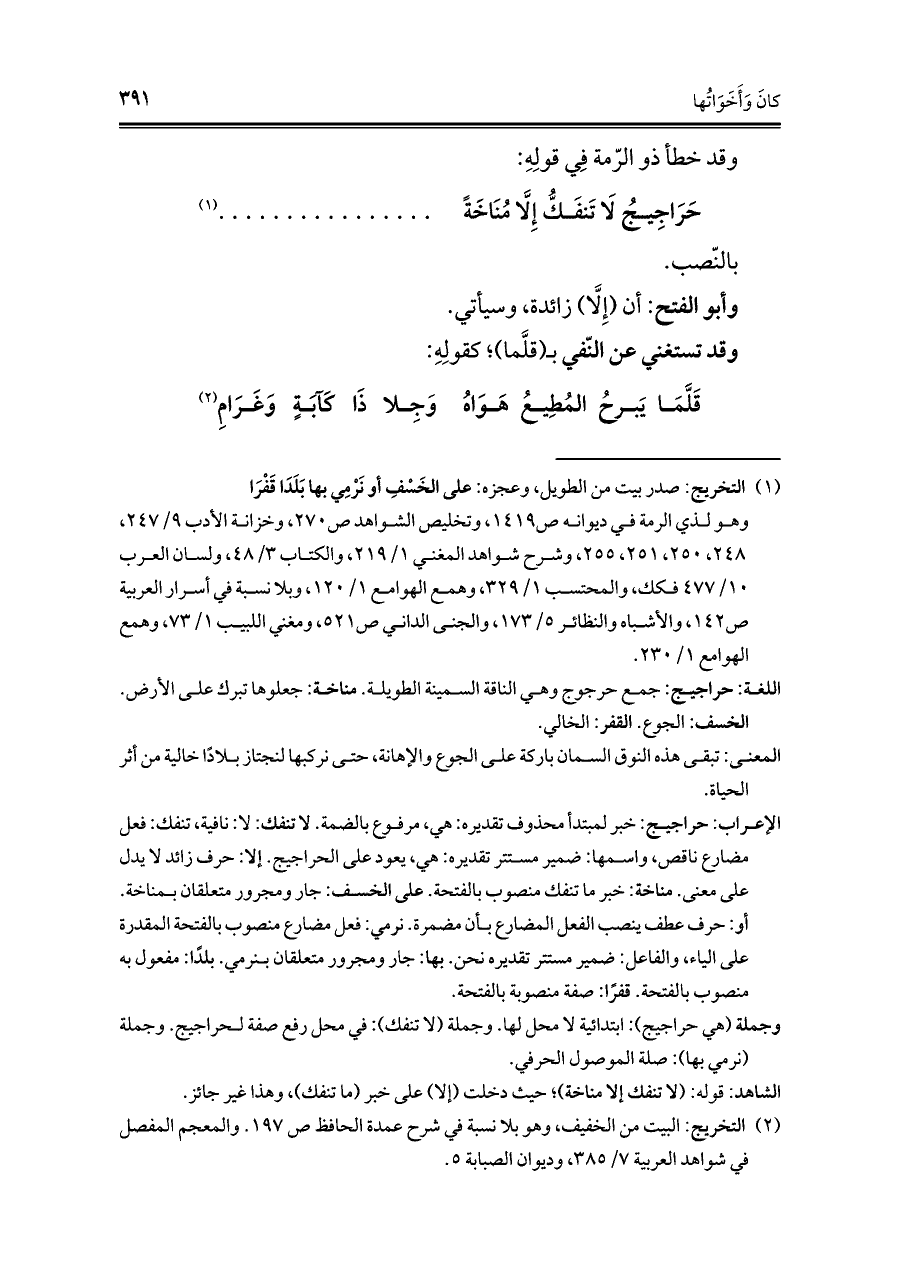 كانَ وَأَخَوَاتُها ٣٩١
وقد خطأ ذو الرّمة فِي قولِهِ:
حَرَاجِيـجُ لَا تَنفَـكُّ إِلَّا مُنَاخَةً ................(١)
بالنّصب.
وأبو الفتح: أن (إِلَّا) زائدة، وسيأتي.
وقد تستغني عن النّفي بـ(قلَّما)؛ كقولِهِ:
قَلَّمَـا يَبـرحُ المُطِيـعُ هَـوَاهُ وَجِـلا ذَا كَآبَـةٍ وَغَـرَامِ(٢)
(١) التخريج: صدر بيت من الطويل، وعجزه: على الخَسْفِ أو نَرْمِي بها بَلَدَا قَفْرَا
وهـو لـذي الرمة فـي ديوانـه ص١٤١٩، وتخليص الشـواهد ص٢٧٠، وخزانـة الأدب ٩/ ٢٤٧،
٢٤٨، ٢٥٠، ٢٥١، ٢٥٥، وشـرح شـواهد المغنـي ١/ ٢١٩، والكتـاب ٣/ ٤٨، ولسـان العـرب
١٠/ ٤٧٧ فـكك، والمحتسـب ١/ ٣٢٩، وهمـع الهوامـع ١/ ١٢٠، وبلا نسـبة في أسـرار العربية
ص١٤٢، والأشـباه والنظائـر ٥/ ١٧٣، والجنـى الدانـي ص٥٢١، ومغني اللبيـب ١/ ٧٣، وهمع
الهوامع ١/ ٢٣٠.
اللغـة: حراجيـج: جمـع حرجوج وهـي الناقة السـمينة الطويلـة. مناخـة: جعلوها تبرك علـى الأرض.
الخسف: الجوع. القفر: الخالي.
المعنـى: تبقـى هذه النوق السـمان باركة علـى الجوع والإهانة، حتـى نركبها لنجتاز بـلادًا خالية من أثر
الحياة.
الإعـراب: حراجيـج: خبر لمبتدأ محذوف تقديره: هي، مرفـوع بالضمة. لا تنفك: لا: نافية، تنفك: فعل
مضارع ناقص، واسـمها: ضمير مسـتتر تقديره: هي، يعود على الحراجيج. إلا: حرف زائد لا يدل
على معنى. مناخة: خبر ما تنفك منصوب بالفتحة. على الخسـف: جار ومجرور متعلقان بـمناخة.
أو: حرف عطف ينصب الفعل المضارع بـأن مضمرة. نرمي: فعل مضارع منصوب بالفتحة المقدرة
على الياء، والفاعل: ضمير مستتر تقديره نحن. بها: جار ومجرور متعلقان بـنرمي. بلدًا: مفعول به
منصوب بالفتحة. قفرًا: صفة منصوبة بالفتحة.
وجملة (هي حراجيج): ابتدائية لا محل لها. وجملة (لا تنفك): في محل رفع صفة لـحراجيج. وجملة
(نرمي بها): صلة الموصول الحرفي.
الشاهد: قوله: (لا تنفك إلا مناخة)؛ حيث دخلت (إلا) على خبر (ما تنفك)، وهذا غير جائز.
(٢) التخريج: البيت من الخفيف، وهو بلا نسبة في شرح عمدة الحافظ ص ١٩٧. والمعجم المفصل
في شواهد العربية ٧/ ٣٨٥، وديوان الصبابة ٥.